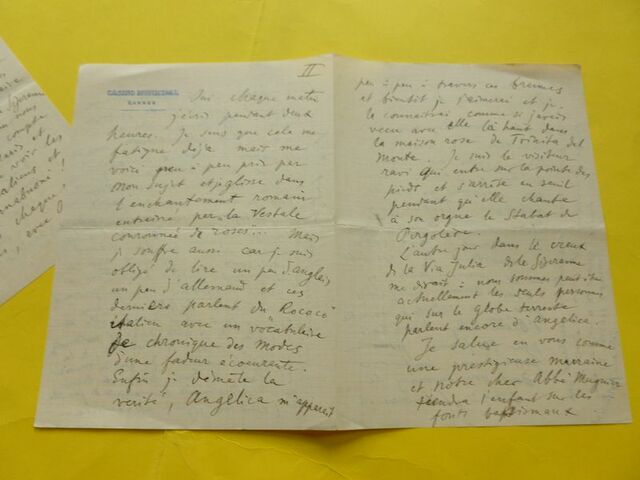 II
CASINO MUNICIPAL
CANNES
Oui chaque matin
j'écris pendant deux
heures. Je sens que cela me
fatigue déjà mais me
voici peu à peu pris par
mon sujet et je glisse dans
l'enchantement romain
entraîné par la Vestale
couronnée de roses... Mais
je souffre aussi car je suis
obligé de lire un peu d'anglais
un peu d'allemand et ces
derniers parlent du Rococo
italien avec un vocabulaire
de chronique des Modes
d'une fadeur écoeurante.
Enfin je démêle la
vérité, Angelica m'apparait
peu à peu à travers ces brumes
et bientôt je l'aimerai et je
la connaitrai comme si j'avais
vécu avec elle là haut dans
la maison rose de Trinita del
Monte. Je suis le visiteur
ravi qui entre sur la pointe des
pieds et s'arrête en seuil
pendant qu'elle chante
à son orgue le Stabat de
Pergolèse.
L'autre jour dans le vieux
de la Via Julia
me disait : nous sommes peut être
actuellement les seuls personnes
qui sur le globe terrestre
parlent encore d'Angelica.
Je salue en vous comme
une prestigieuse marraine
et notre cher Abbé Mugnier
tiendra l'enfant sur les
fonts baptismaux